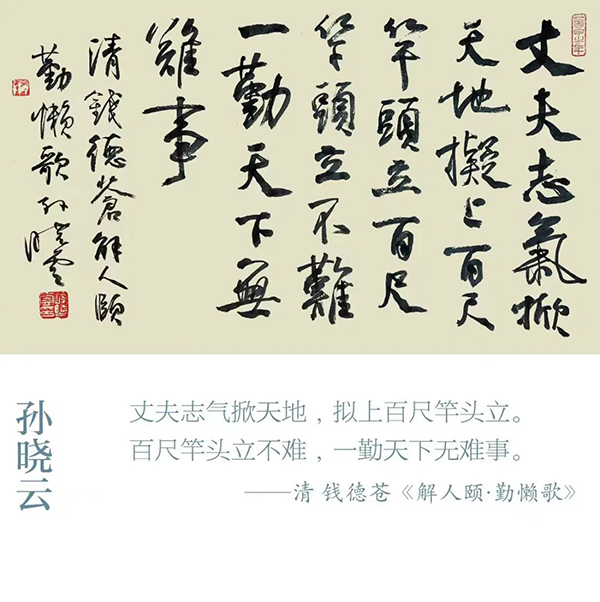 丈夫志氣掀
天地擬上百尺
竿頭立百尺
竿頭立不難
一勤天下無
難事
清錢德蒼解人頤
勤懶歌孫曉雲
孙晓云
丈夫志气掀天地，拟上百尺竿头立。
百尺竿头立不难，一勤天下无难事。
——清 钱德苍《解人颐·勤懒歌》